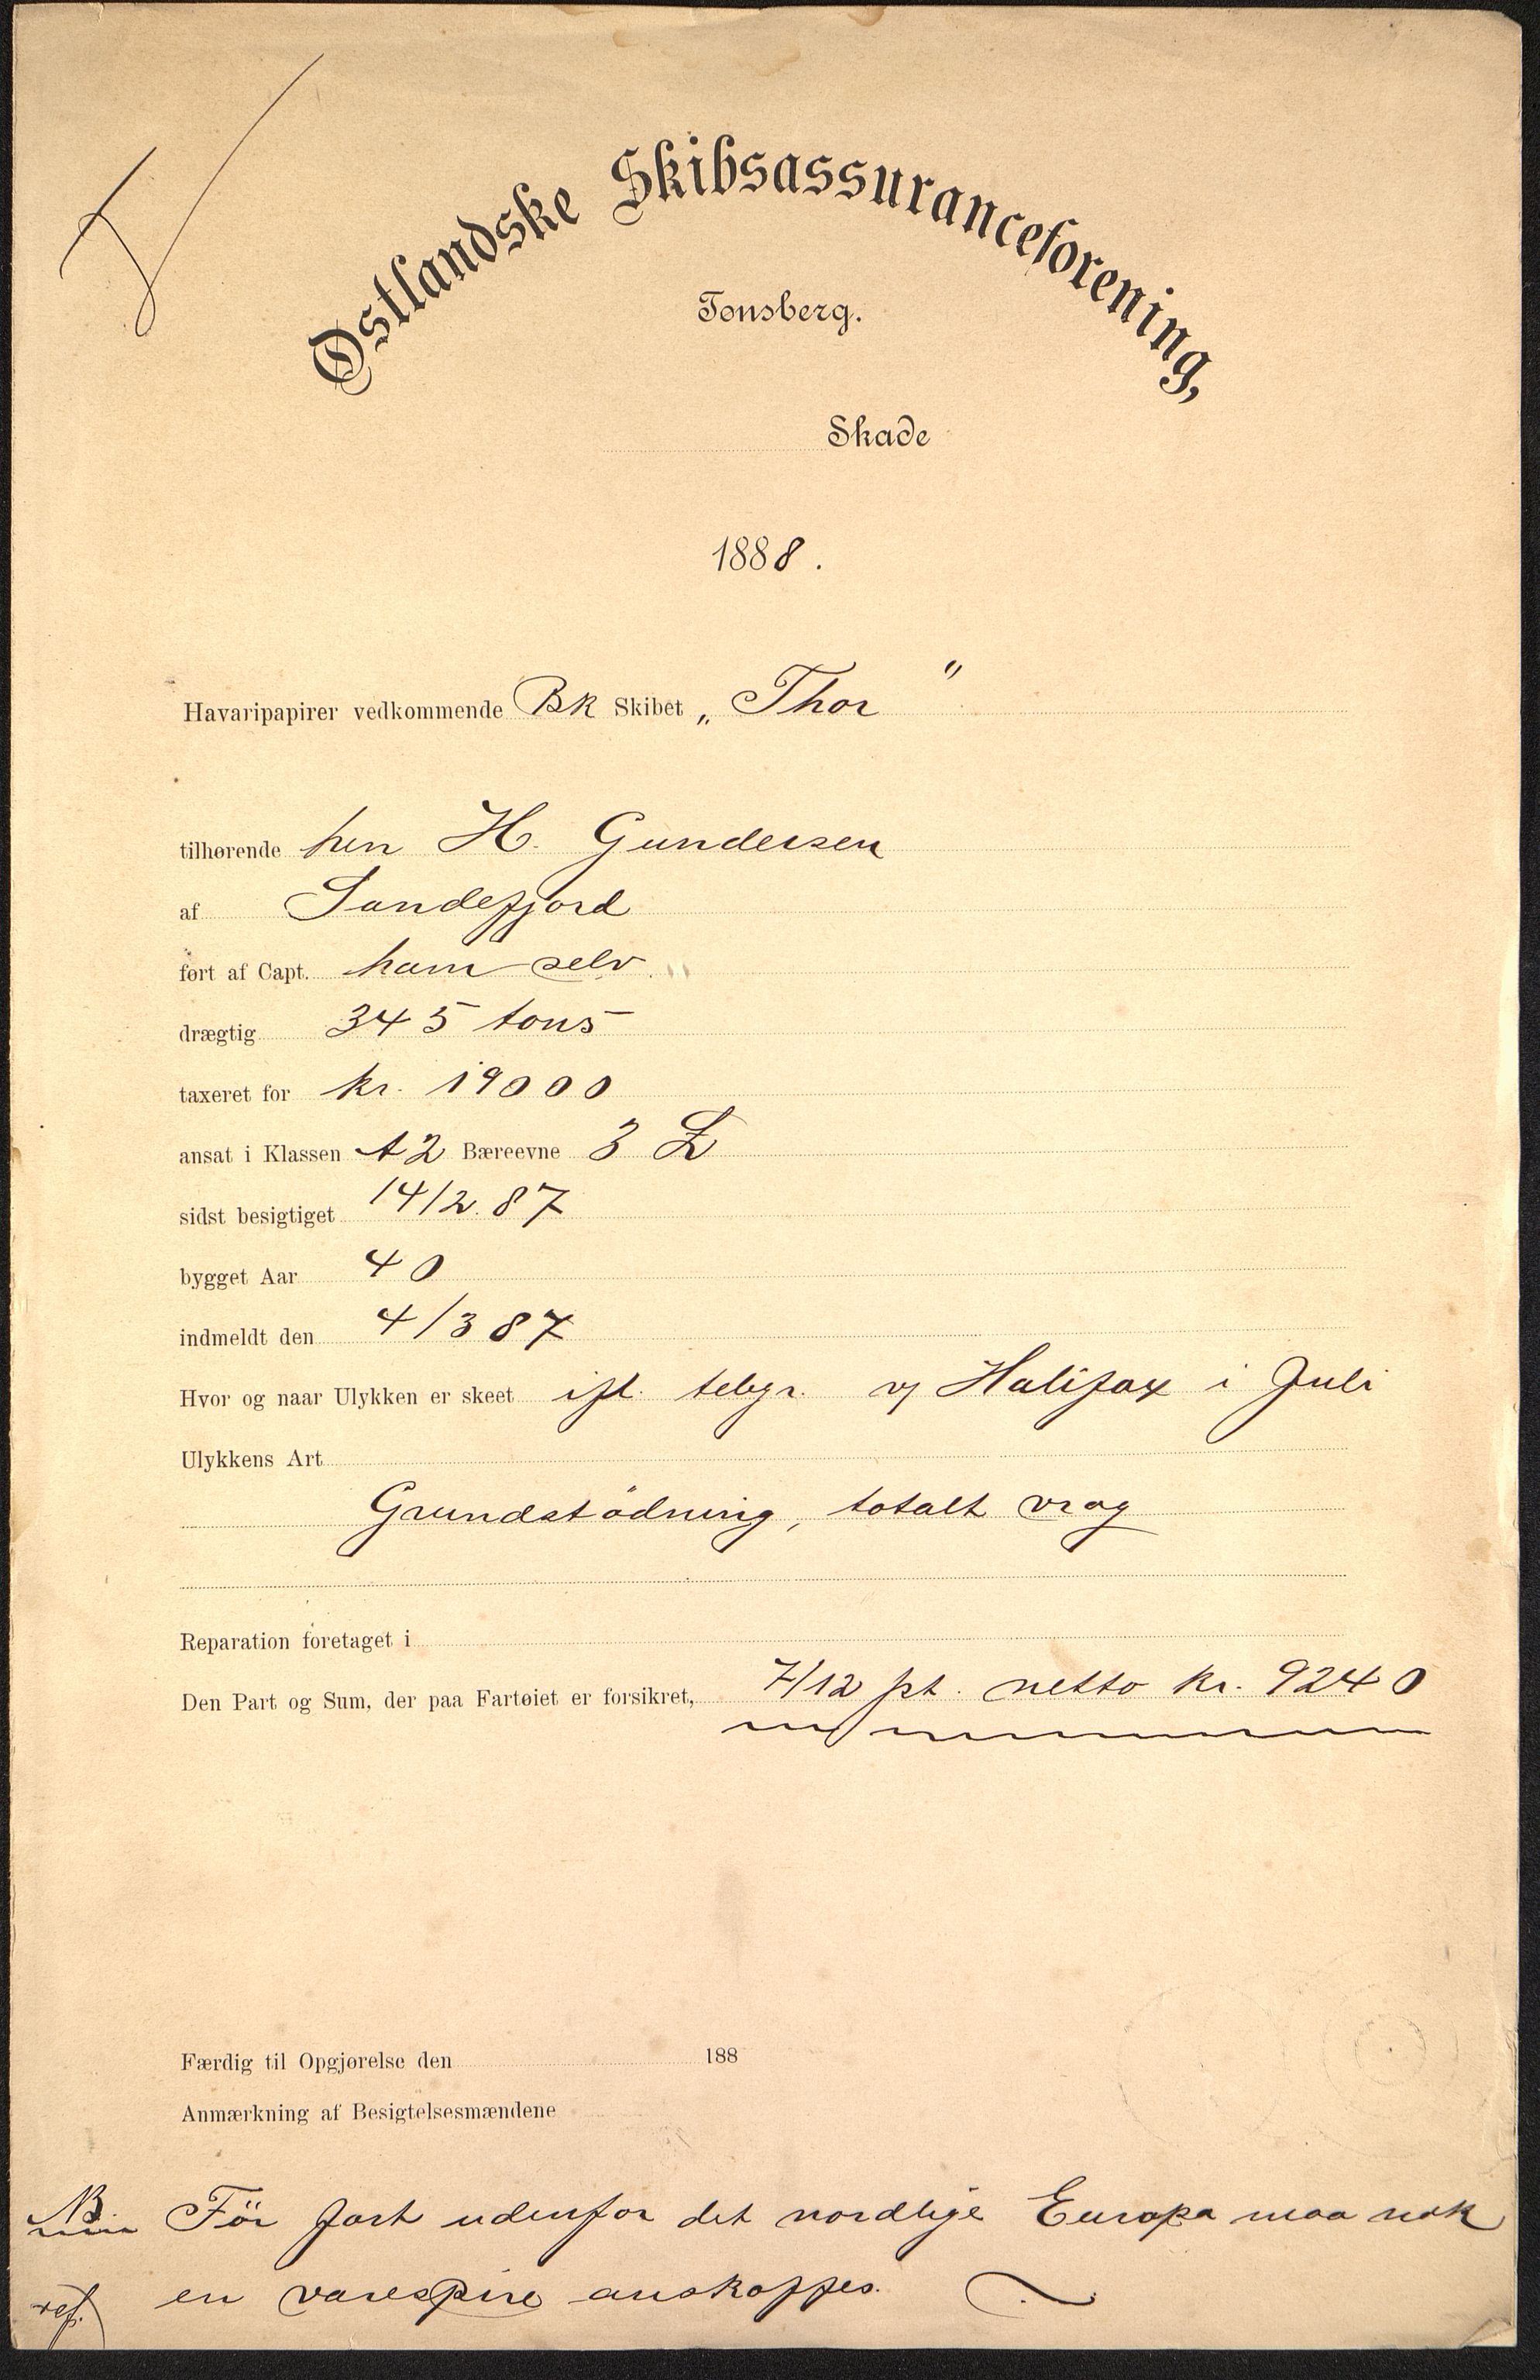 Østlandske Skibsassuranceforening,
Tønsberg.
Skade
1888.
Havaripapirer vedkommende Bk Skibet „Thor"
tilhørende herr H. Gundersen
af Sandefjord
ført af Capt. ham selv
drægtig 345 tons
taxeret for kr. 19000
ansat i Klassen A2 Bæreevne 3 Z
sidst besigtiget 14/2.87
bygget Aar 40
indmeldt den 4/3 87
Hvor og naar Ulykken er skeet ifl. telegr. v/ Halifax i Juli
Ulykkens Art
Grundstödning, totalt vrag
Reparation foretaget i
Den Part og Sum, der paa Fartøiet er forsikret, 7/12 pt. netto kr. 9240
Færdig til Opgjørelse den 188
Anmærkning af Besigtelsesmændene
NB. För fart udenfor det nordlige Europa maa nok
en varespire anskaffes.